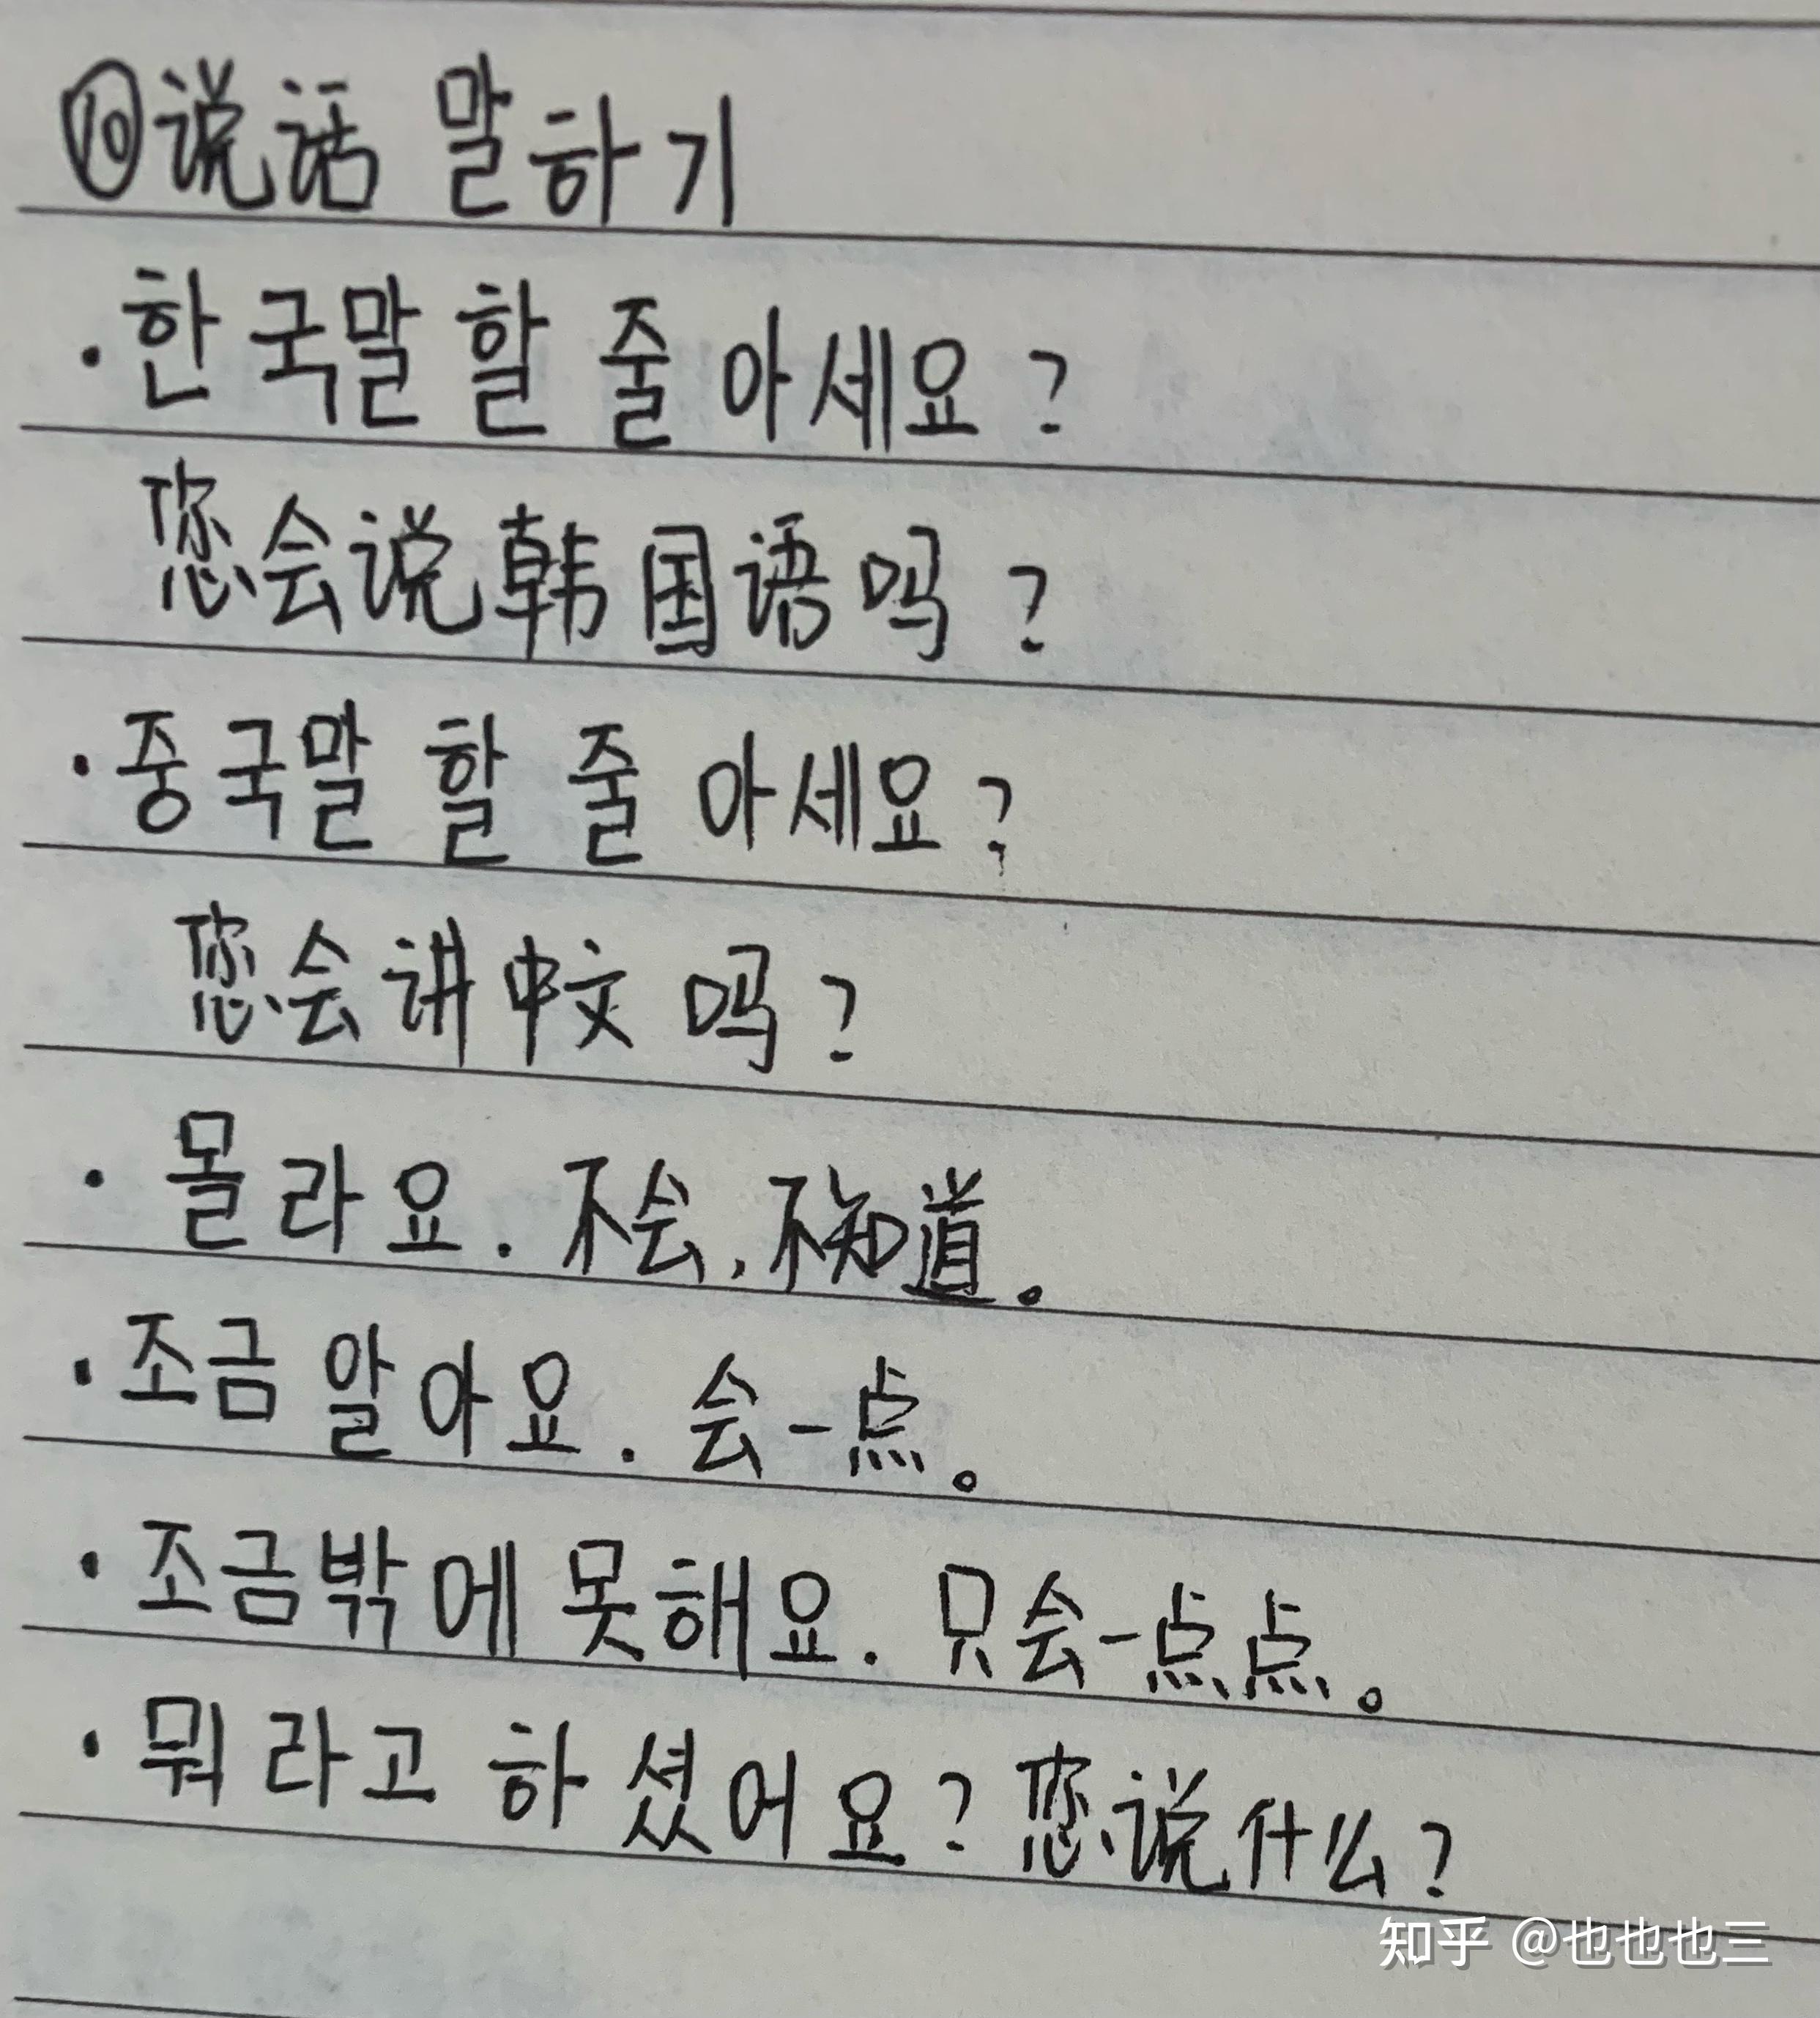 ⑩说话 말하기
·한국말 할 줄 아세요?
您会说韩国语吗?
·중국말 할 줄 아세요?
您会讲中文吗?
·몰라요. 不会,不知道。
·조금 알아요. 会一点。
·조금밖에 못해요. 只会一点点。
·뭐라고 하셨어요?您说什么?
知乎 @也也也三